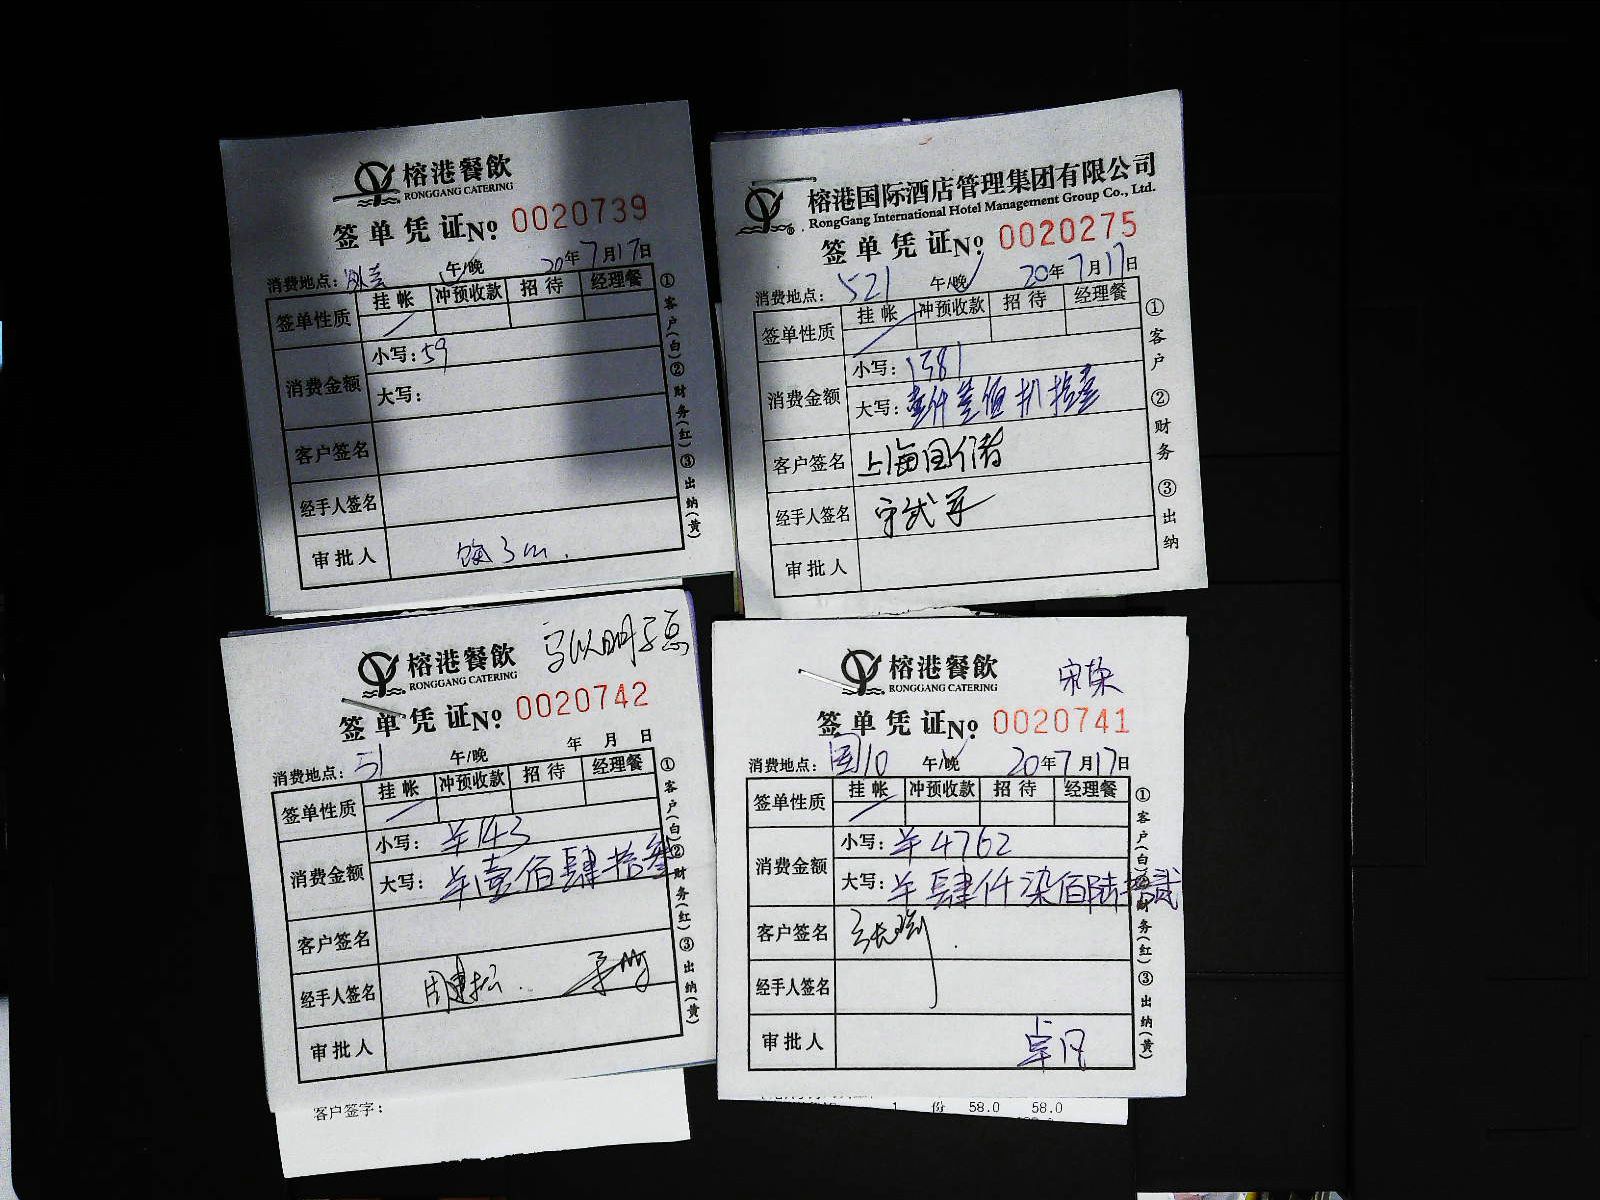 榕港餐飲
RONGGANG CATERING
签单凭证№ 0020739
消费地点： 午/晚 20年7月17日
挂帐 冲预收款 招待 经理餐
签单性质
小写：59
消费金额
大写：
客户签名
经手人签名
审批人
①客户(白)②财务(红)③出纳(黄)
榕港国际酒店管理集团有限公司
RongGang International Hotel Management Group Co., Ltd.
签单凭证№ 0020275
消费地点：521 午/晚 20年7月17日
挂帐 冲预收款 招待 经理餐
签单性质
小写：1381
消费金额
大写：壹仟叁佰扒拾壹
客户签名 上海国储
经手人签名
审批人
①客户 ②财务 ③出纳
榕港餐飲
RONGGANG CATERING
签单凭证№ 0020742
消费地点：51 午/晚 年 月 日
挂帐 冲预收款 招待 经理餐
签单性质
小写：羊143
消费金额
大写：羊壹佰肆拾叁
客户签名
经手人签名 周建松
审批人
①客户(白)②财务(红)③出纳(黄)
客户签字：
榕港餐飲
宋荣
RONGGANG CATERING
签单凭证№ 0020741
消费地点：国10 午/晚 20年7月17日
挂帐 冲预收款 招待 经理餐
签单性质
小写：羊4762
消费金额
大写：羊肆仟柒佰陆拾贰
客户签名
经手人签名
审批人 卓凡
①客户(白)②财务(红)③出纳(黄)
1 份 58.0 58.0